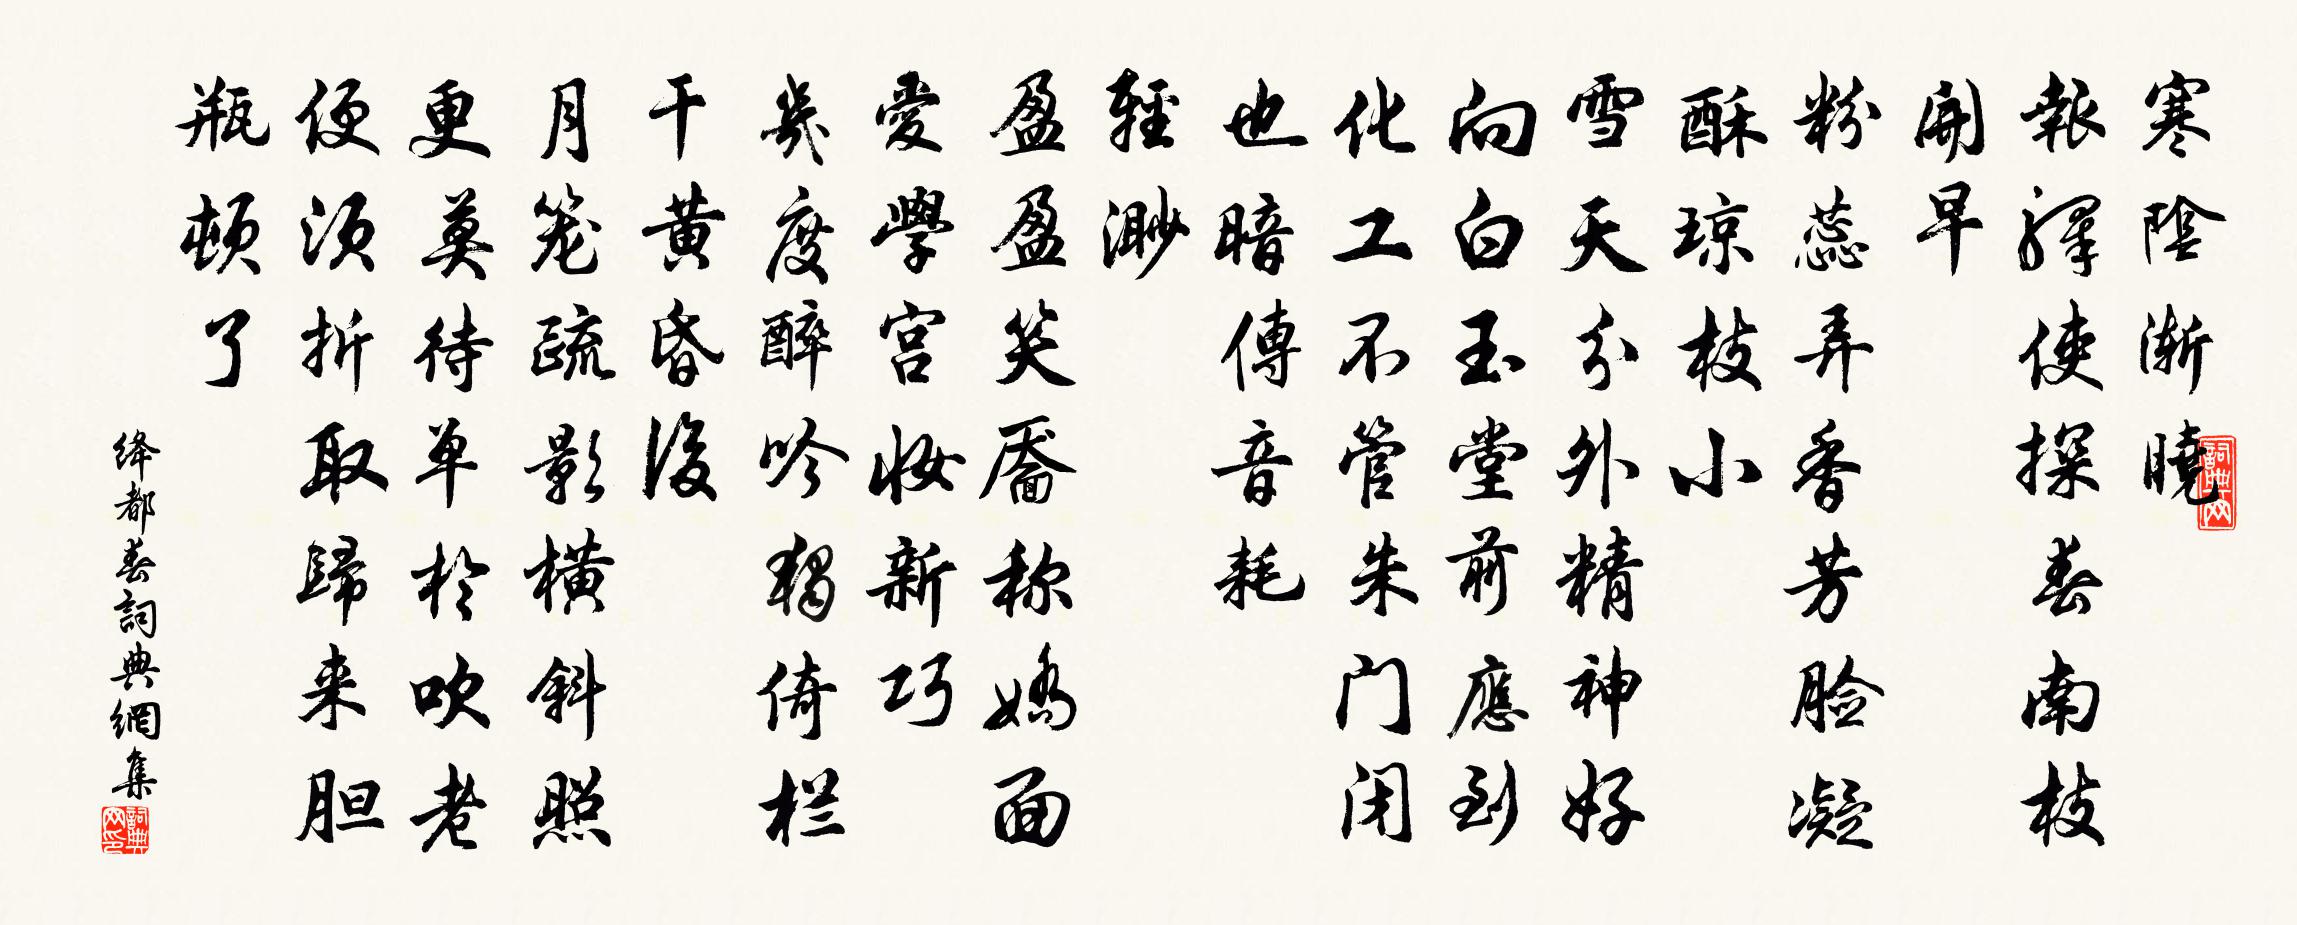 寒陰漸曉
報驛使探春南枝
開早
粉蕊弄香芳脸凝
酥琼枝小
雪天分外精神好
向白玉堂前應到
化工不管朱门闭
也暗傳音耗
輕渺
盈盈笑靥称嬌面
愛學宫妝新巧
幾度醉吟獨倚栏
干黄昏後
月笼疏影横斜照
更莫待单於吹老
便須折取歸来胆
瓶頓了
绛都春詞典網集
詞典网
詞典网印